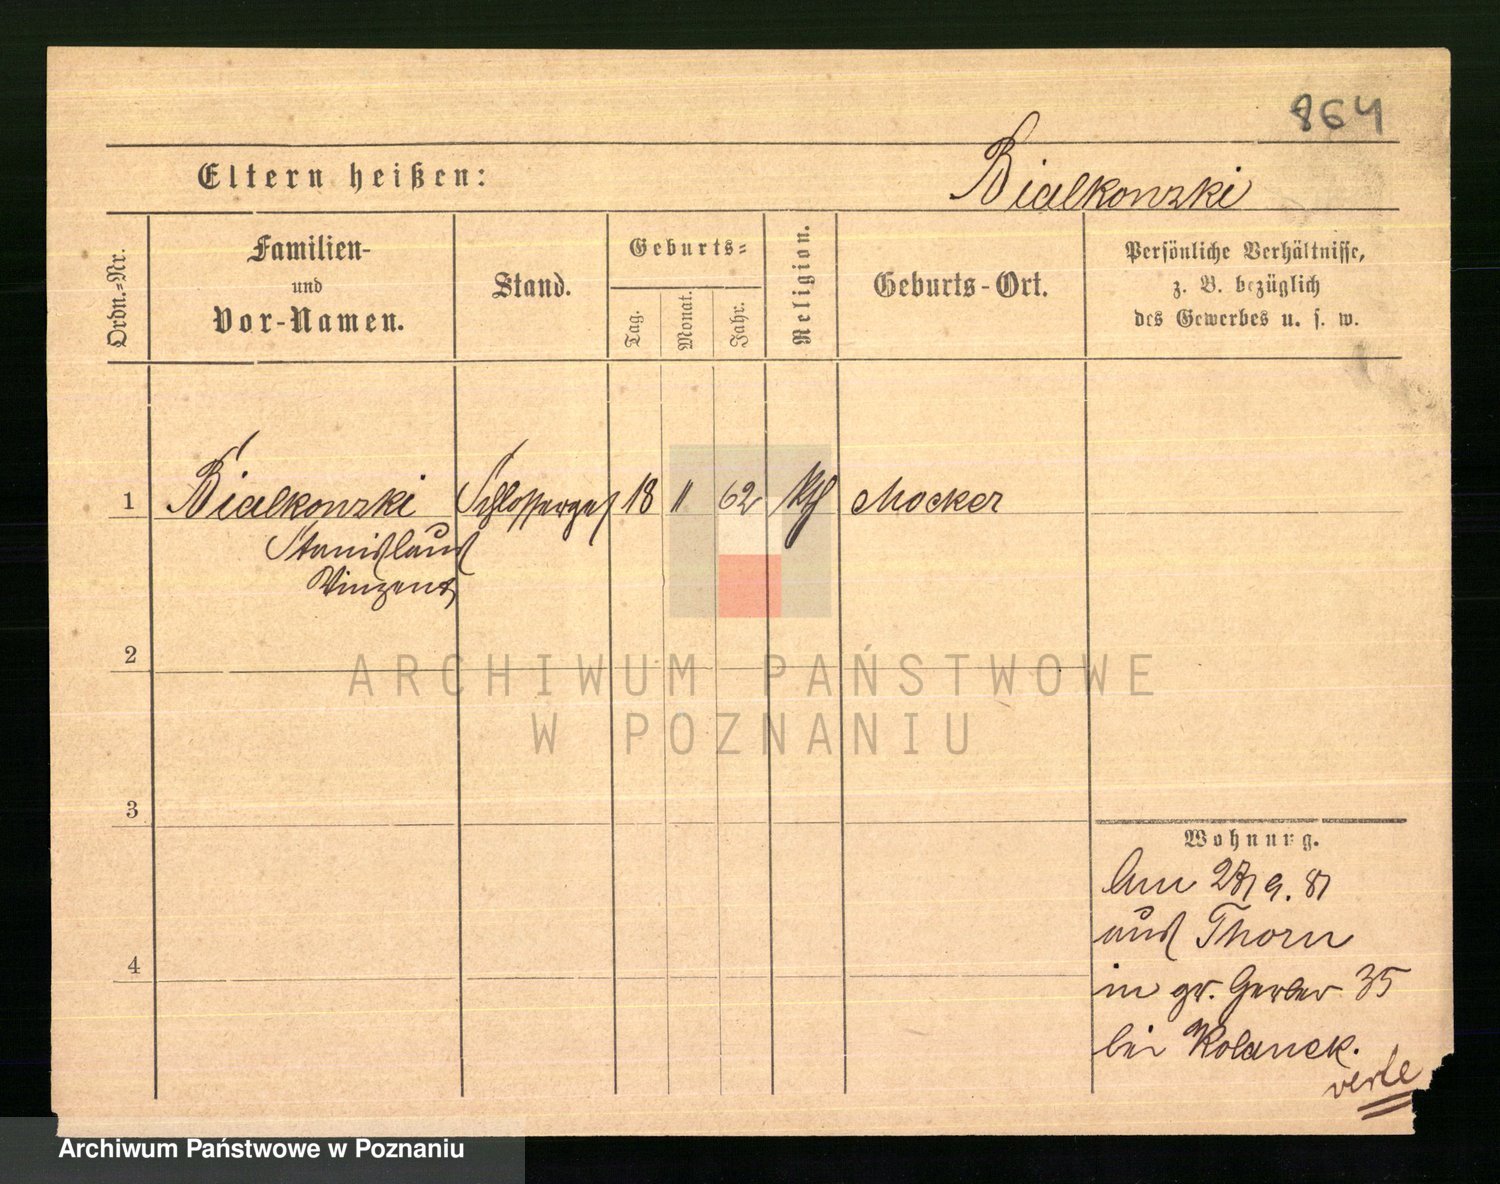 864
Eltern heißen:
Bialkowski
Ordn.-Nr.
Familien-
und
Vor-Namen.
Stand.
Geburts-
Tag.
Monat.
Jahr.
Religion.
Geburts-Ort.
Persönliche Verhältnisse,
z. B. bezüglich
des Gewerbes u. s. w.
1 Bialkowski Schlosserges 18 11 62 kth Mocker
Stanislaus
Vinzent
2
ARCHIWUM PAŃSTWOWE
W POZNANIU
3
Wohnung.
Am 9. 81
aus Thorn
4
in gr. Gerber 35
bei Kolanek.
verte
Archiwum Państwowe w Poznaniu